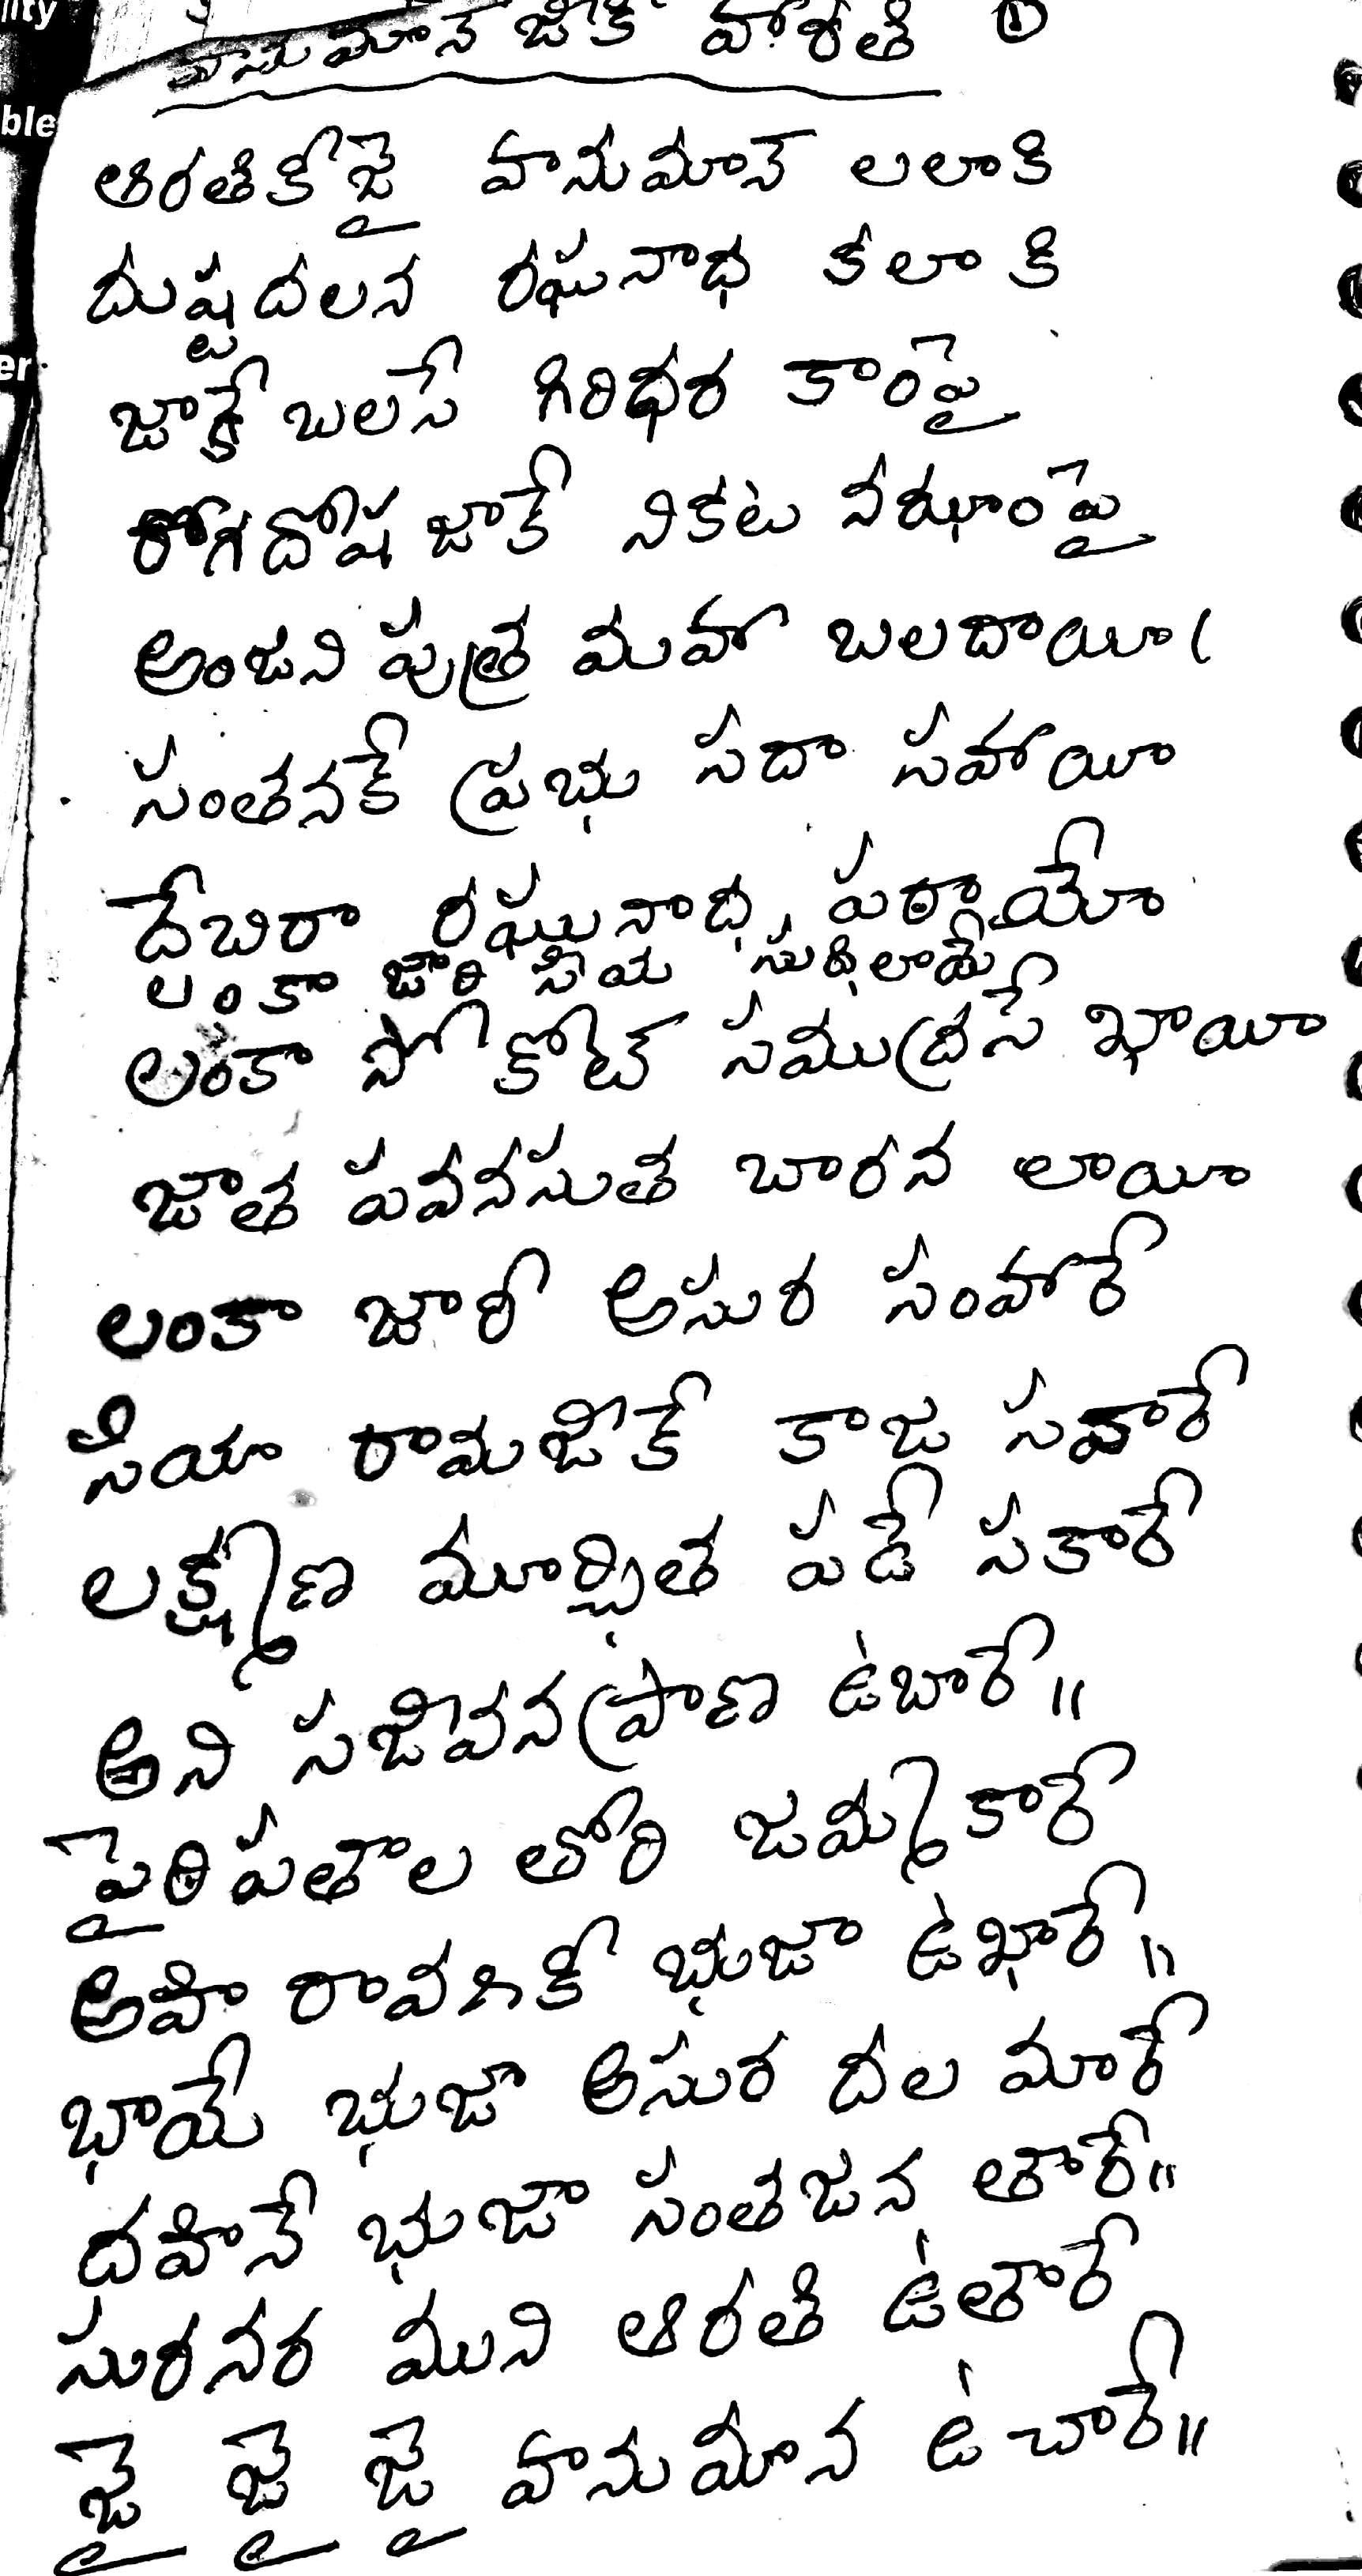 హనుమాన్ జీకి హారతి ①
ఆరతికీజై హనుమాన్ లలాకి
దుష్టదలన రఘునాధ కలాకి
జాకే బలసే గిరిధర కాంపై
రోగదోష జాకే నికట నఝాంపై
అంజని పుత్ర మహా బలదాయీ।
సంతనకే ప్రభు సదా సహాయీ
దేబిరా రఘునాధ పఠాయో
లంకా జారి సియ సుధిలాయే
లంకా సో కోట్ సముద్రసే ఖాయీ
జాత పవనసుత బారన లాయీ
లంకా జారీ అసుర సంహారే
సియా రామజీకే కాజ సవారే
లక్ష్మణ మూర్ఛిత పడే సకారే
అని సజీవన ప్రాణ ఉబారే॥
పైరి పతాల తోరి జమ్కారే
అహి రావణకీ భుజా ఉఖారే॥
భాయే భుజా అసుర దల మారే
దహినే భుజా సంతజన తారే॥
సురనర ముని ఆరతి ఉతారే
జై జై జై హనుమాన ఉచారే॥